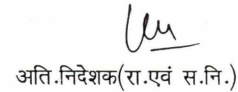 अति.निदेशक(रा.एवं स.नि.)